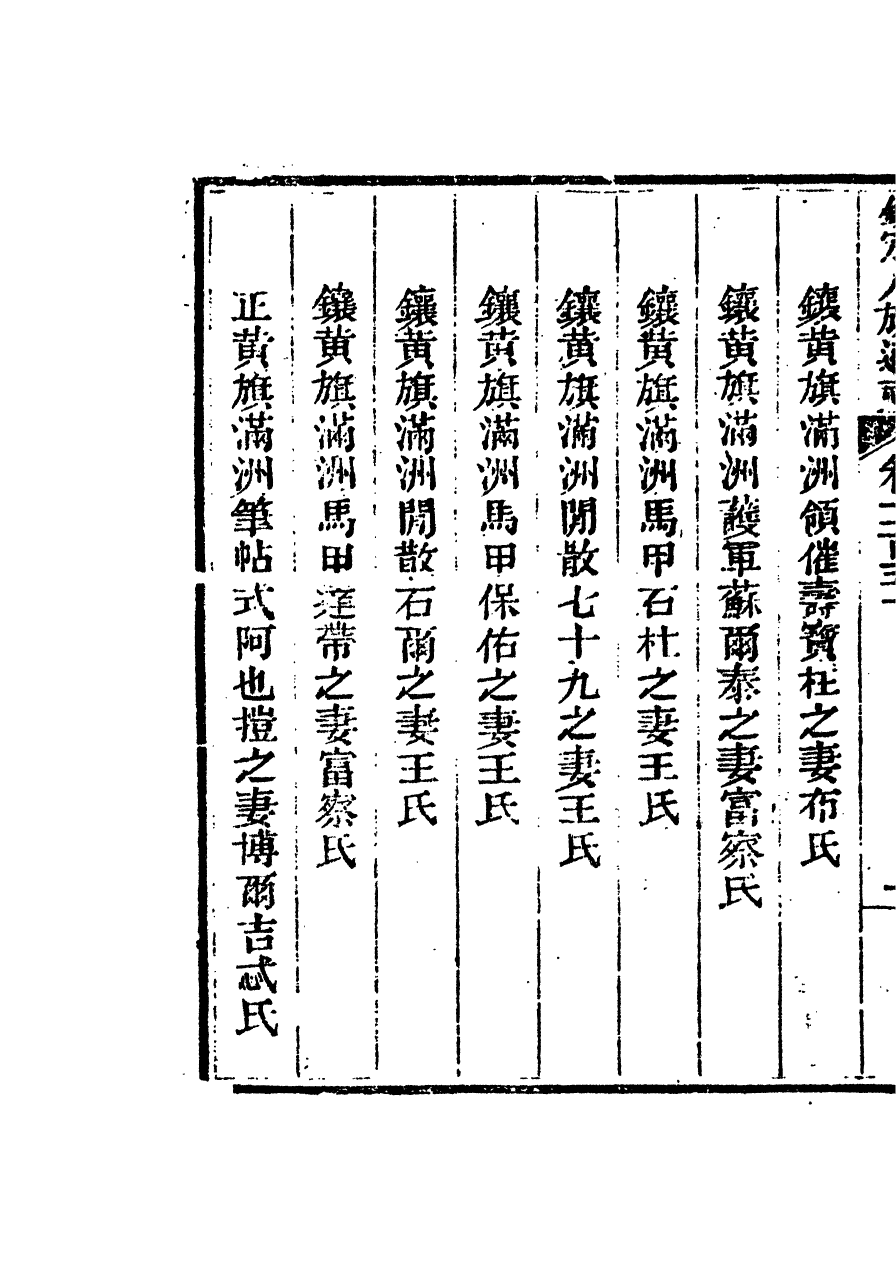 鑲黃旗滿洲領催壽寶柱之妻布氏
鑲黃旗滿洲護軍蘇爾泰之妻富察氏
鑲黃旗滿洲馬甲石柱之妻王氏
鑲黃旗滿洲閒散七十九之妻王氏
鑲黃旗滿洲馬甲保佑之妻王氏
鑲黃旗滿洲閒散石爾之妻王氏
鑲黃旗滿洲馬甲達帶之妻富察氏
正黃旗滿洲筆帖式阿也揎之妻博爾吉忒氏